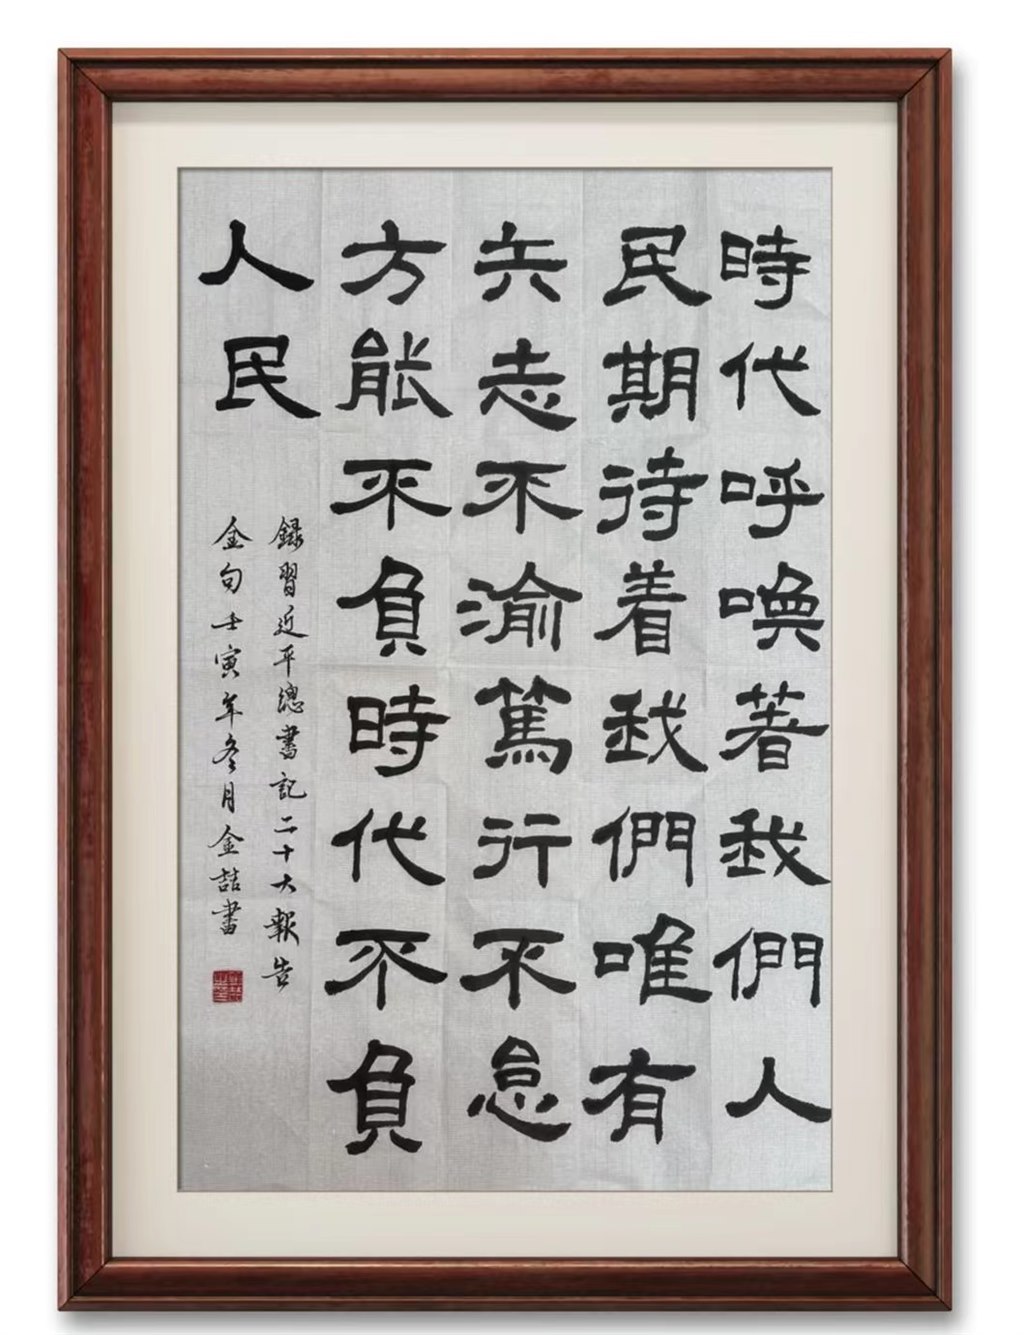 時代呼喚著我們人
民期待着我們唯有
矢志不渝篤行不怠
方能不負時代不負
人民
録習近平總書記二十大報告
金句壬寅年冬月金喆書